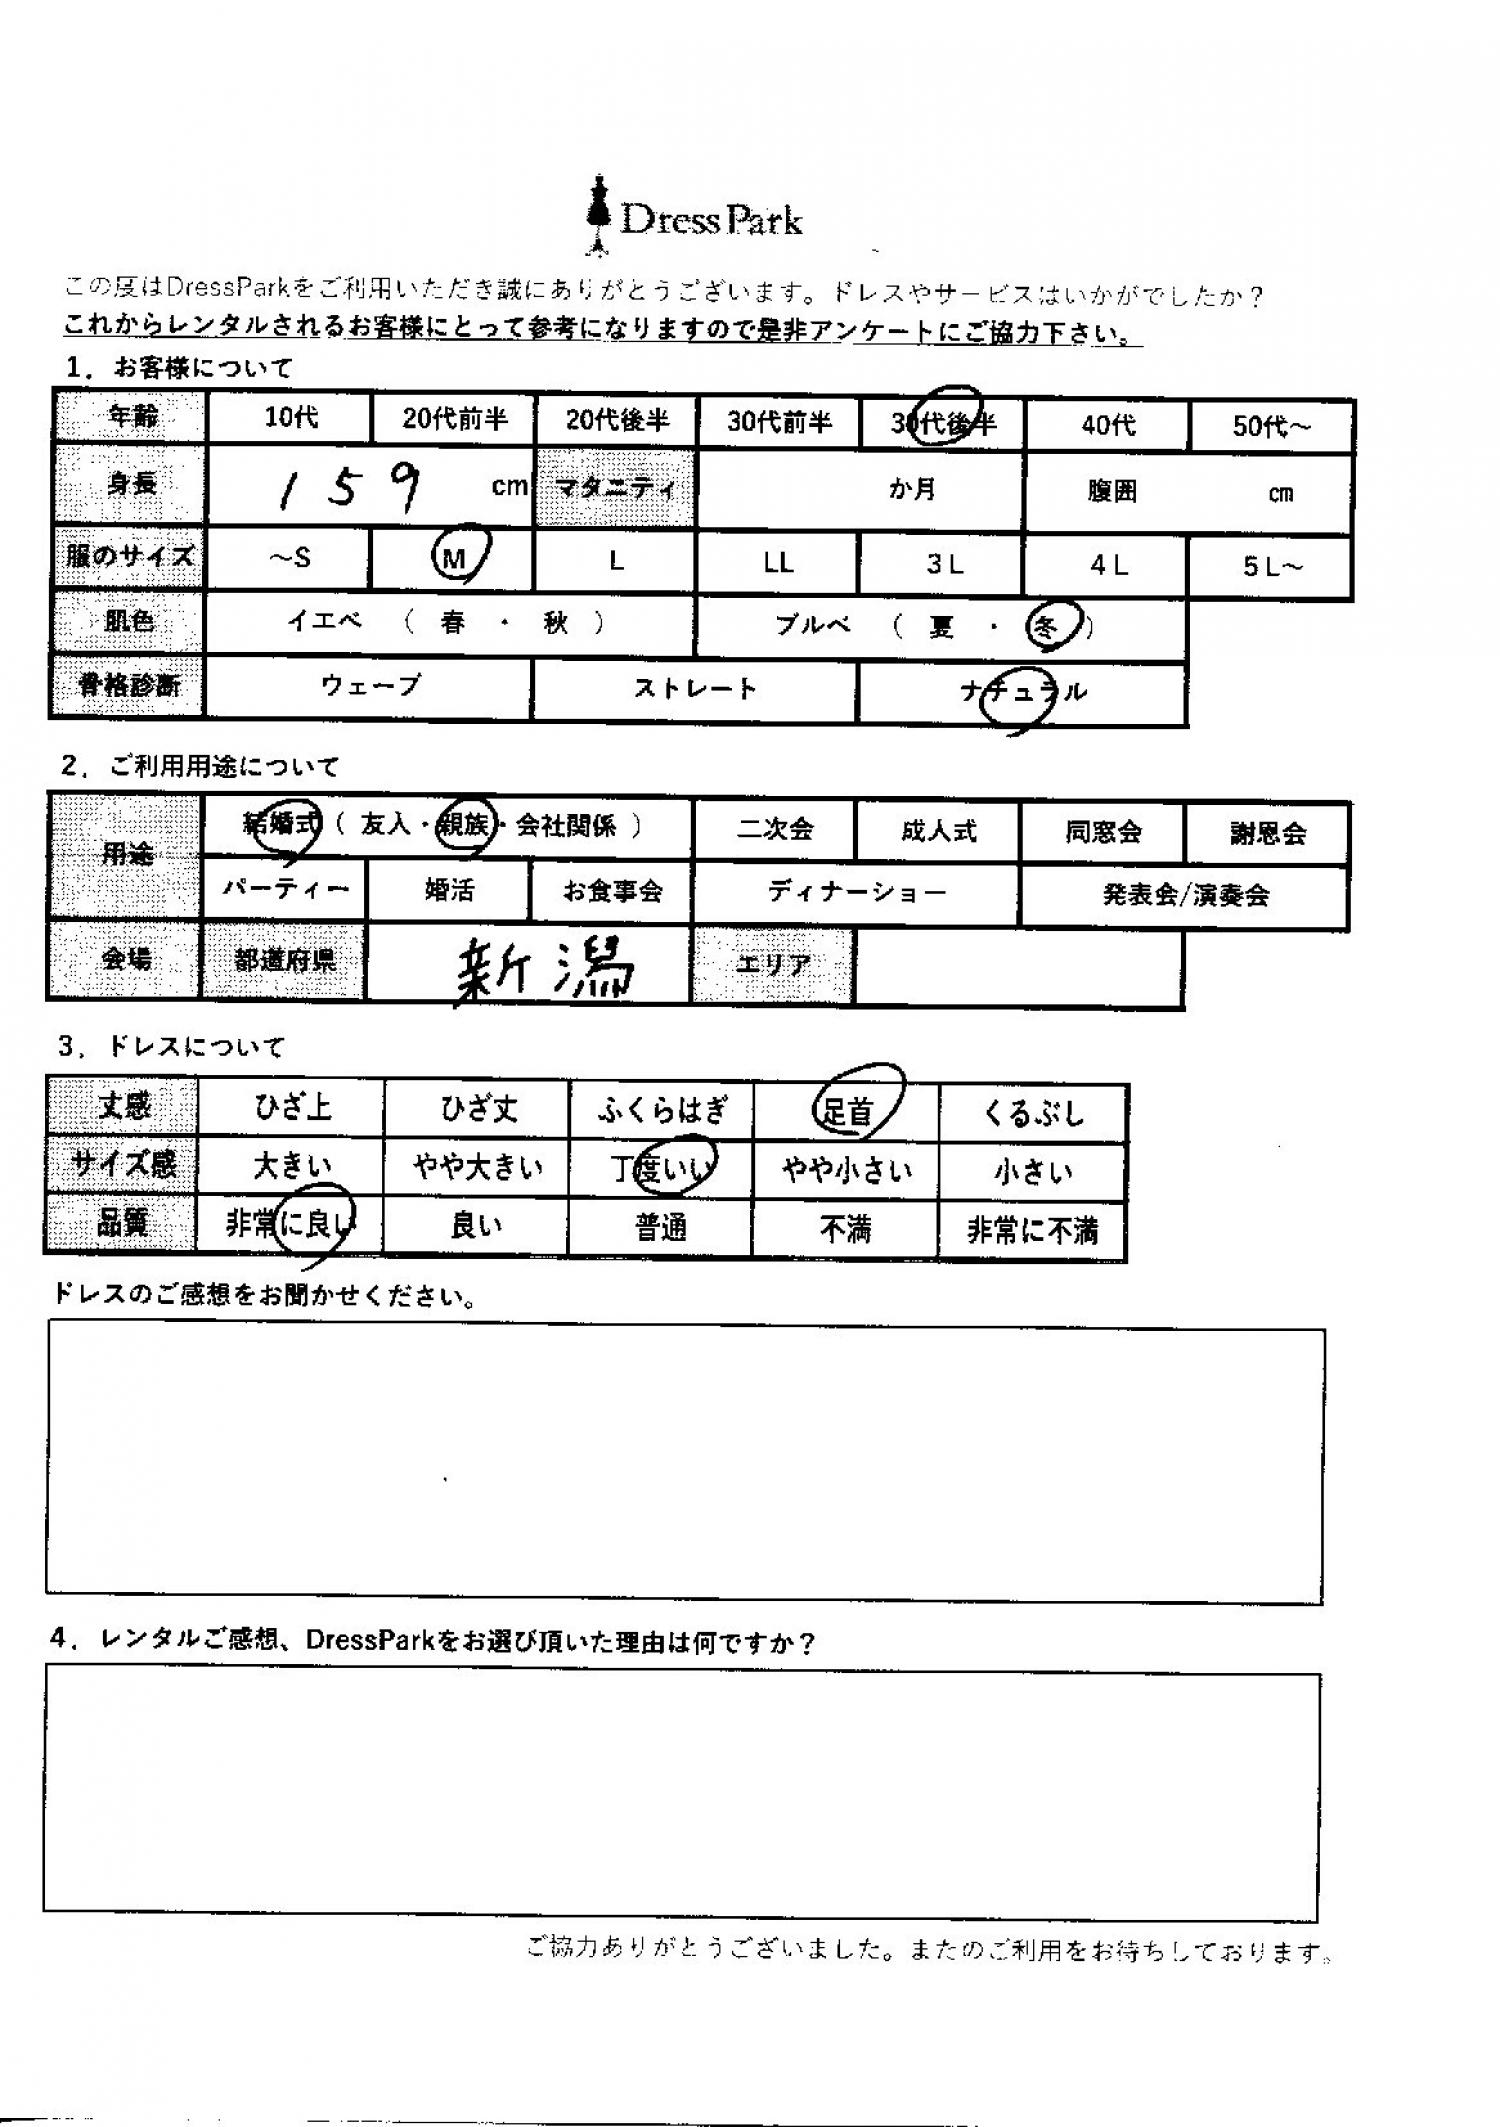 Dress Park
この度はDressParkをご利用いただき誠にありがとうございます。ドレスやサービスはいかがでしたか？
これからレンタルされるお客様にとって参考になりますので是非アンケートにご協力下さい。
1．お客様について
年齢 10代 20代前半 20代後半 30代前半 30代後半 40代 50代～
身長 159 cm マタニティ か月 腹囲 cm
服のサイズ ～S M L LL 3L 4L 5L～
肌色 イエベ （ 春 ・ 秋 ） ブルベ （ 夏 ・ 冬 ）
骨格診断 ウェーブ ストレート ナチュラル
2．ご利用用途について
用途 結婚式（ 友人・親族・会社関係 ） 二次会 成人式 同窓会 謝恩会
パーティー 婚活 お食事会 ディナーショー 発表会/演奏会
会場 都道府県 新潟 エリア
3．ドレスについて
丈感 ひざ上 ひざ丈 ふくらはぎ 足首 くるぶし
サイズ感 大きい やや大きい 丁度いい やや小さい 小さい
品質 非常に良い 良い 普通 不満 非常に不満
ドレスのご感想をお聞かせください。
4．レンタルご感想、DressParkをお選び頂いた理由は何ですか？
ご協力ありがとうございました。またのご利用をお待ちしております。